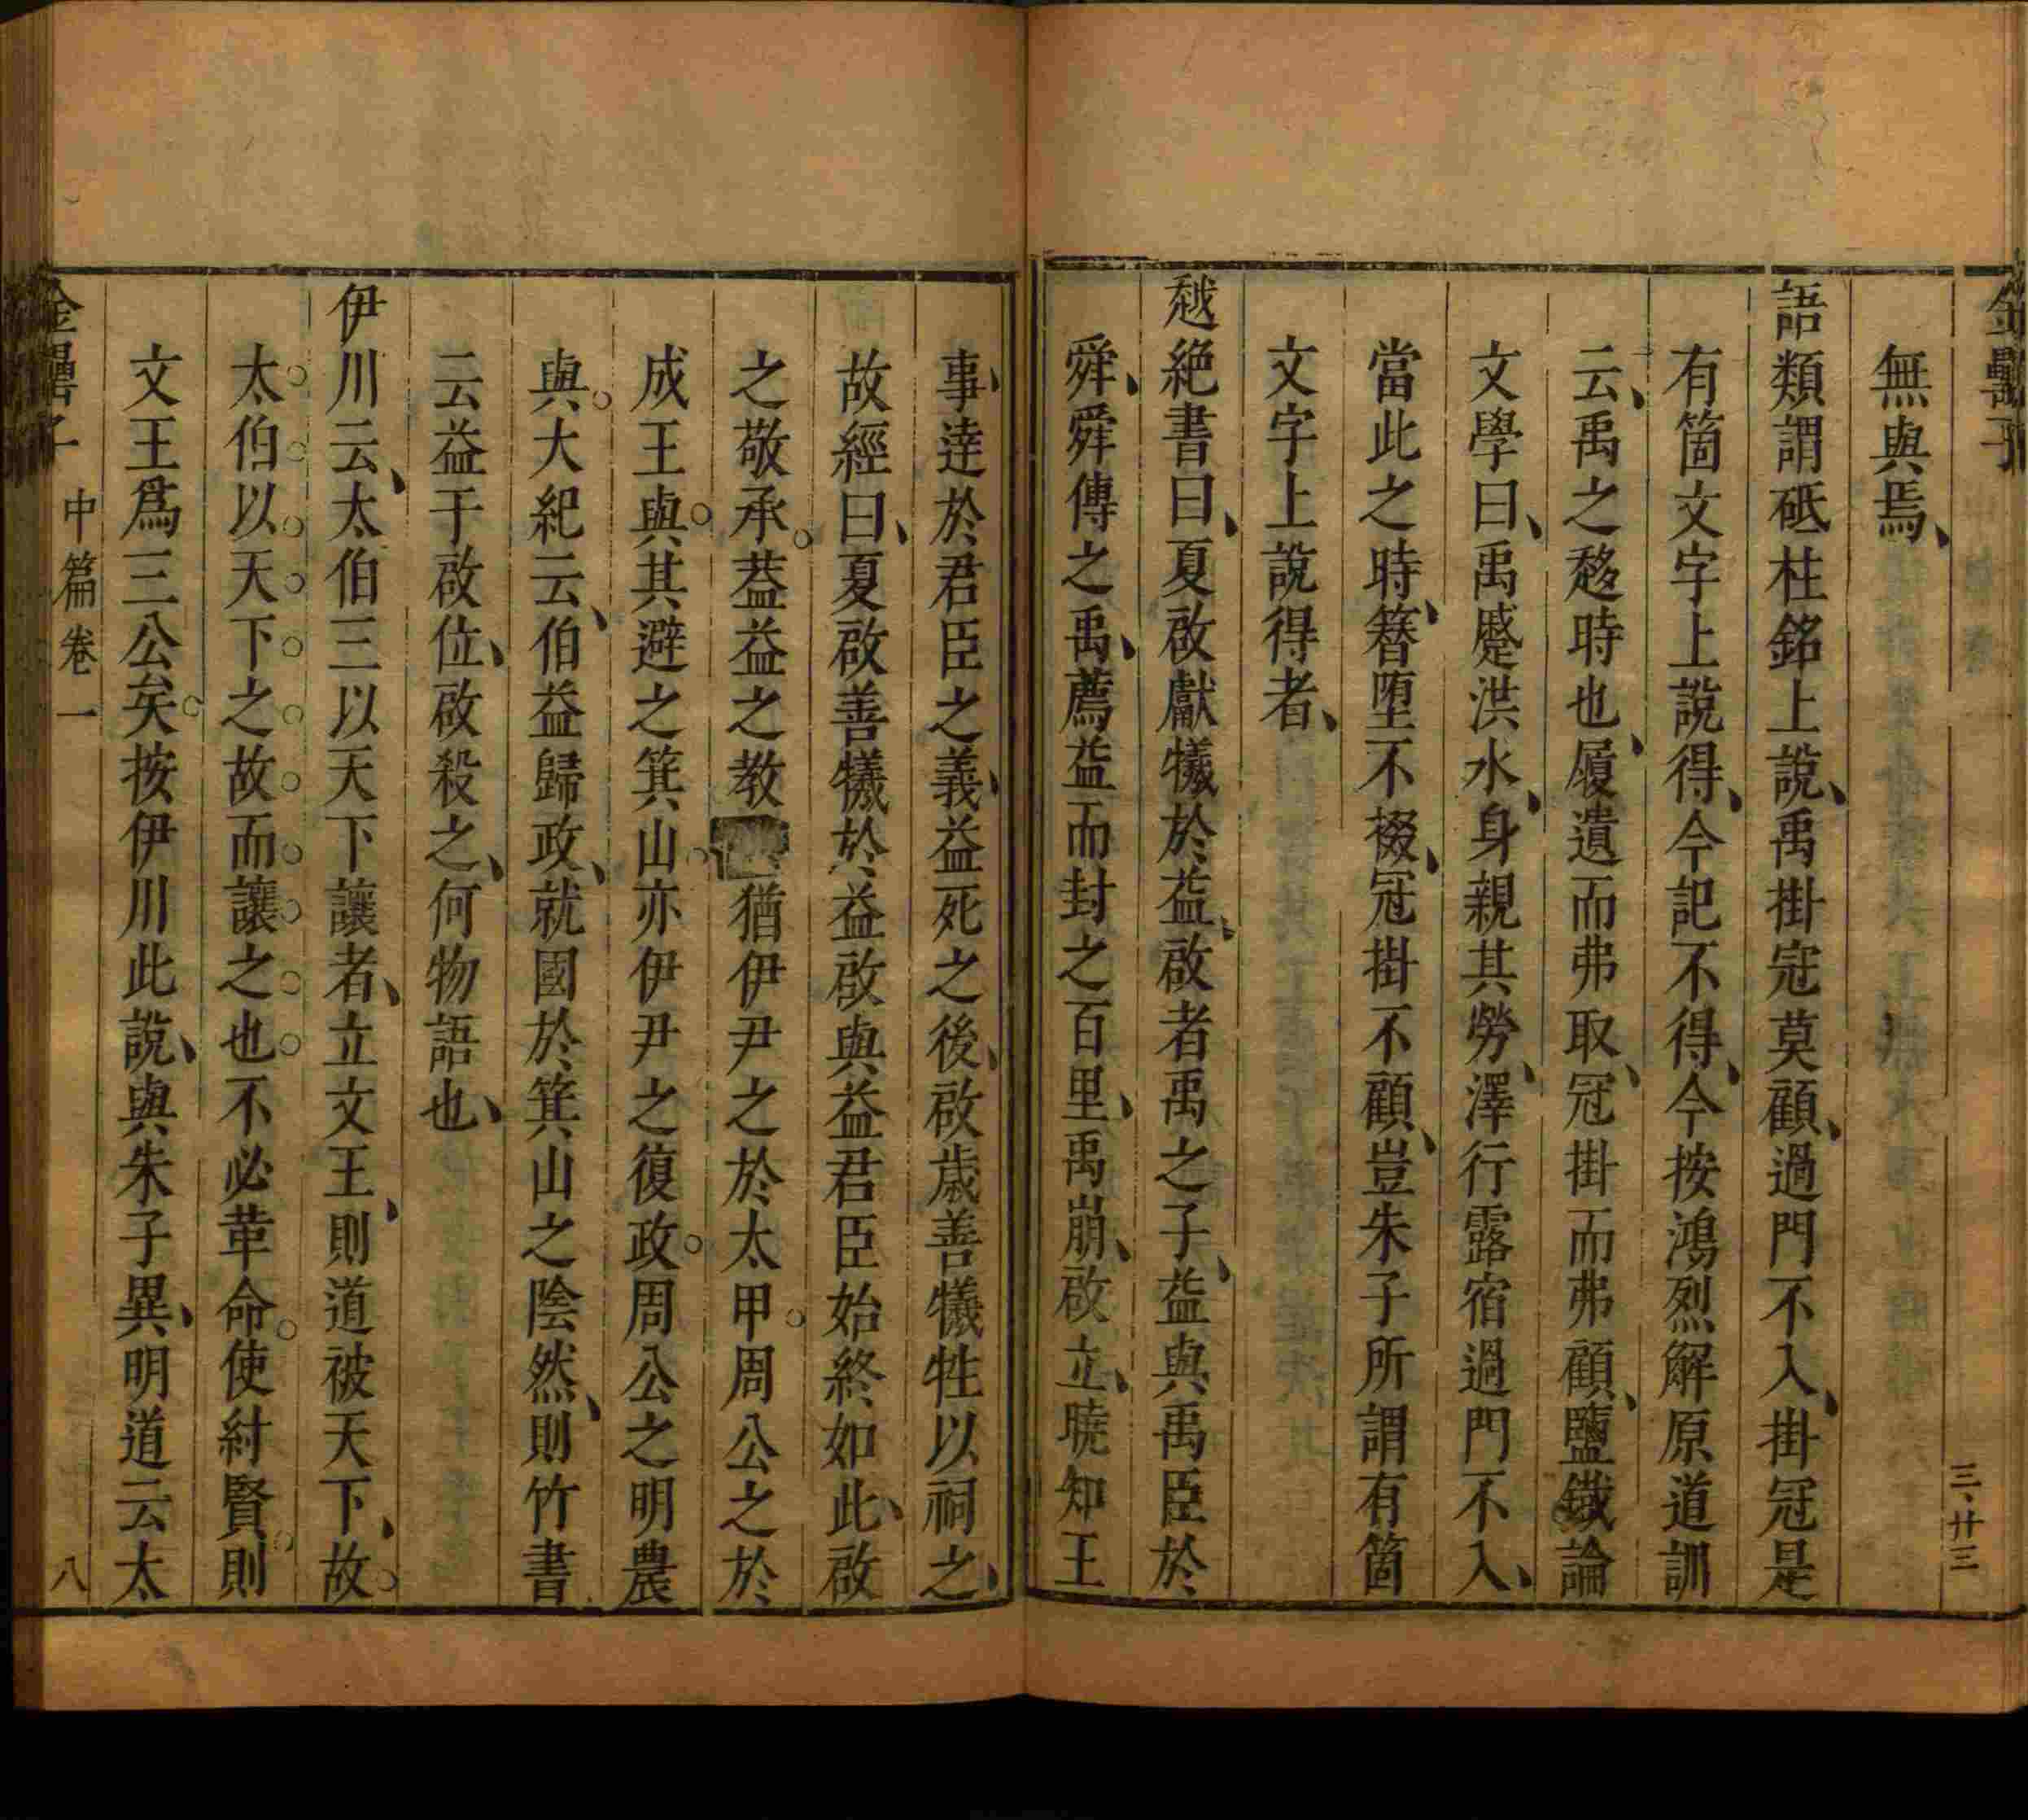 金罍子
三、廿三
無與焉、
語類謂砥柱銘上說、禹掛冠莫顧、過門不入、掛冠是
有箇文字上說得、今記不得、今按鴻烈解原道訓
云、禹之趍時也、履遺而弗取、冠掛而弗顧、鹽鐵論
文學曰、禹蹙洪水、身親其勞、澤行露宿過門不入、
當此之時、簪墮不掇、冠掛不顧、豈朱子所謂有箇
文字上說得者、
越絕書曰、夏啟獻犧於益、啟者禹之子、益與禹臣於
舜、舜傳之禹、薦益而封之百里、禹崩、啟立、曉知王
事、逹於君臣之義、益死之後、啟歲善犧牲以祠之、
故經曰、夏啟善犧於益啟與益君臣始終如此、啟
之敬承。葢益之教猶伊尹之於太甲。周公之於
成王與。其避之箕山。亦伊尹之復政。周公之明農
與。大紀云、伯益歸政、就國於箕山之陰然、則竹書
云益干啟位、啟殺之、何物語也、
伊川云、太伯三以天下讓者、立文王、則道被天下、故。
太。伯。以。天。下。之。故。而。讓。之。也。不必革命。使紂賢。則
文王爲三公矣。按伊川此說、與朱子異、明道云太
金罍子
中篇卷一
八